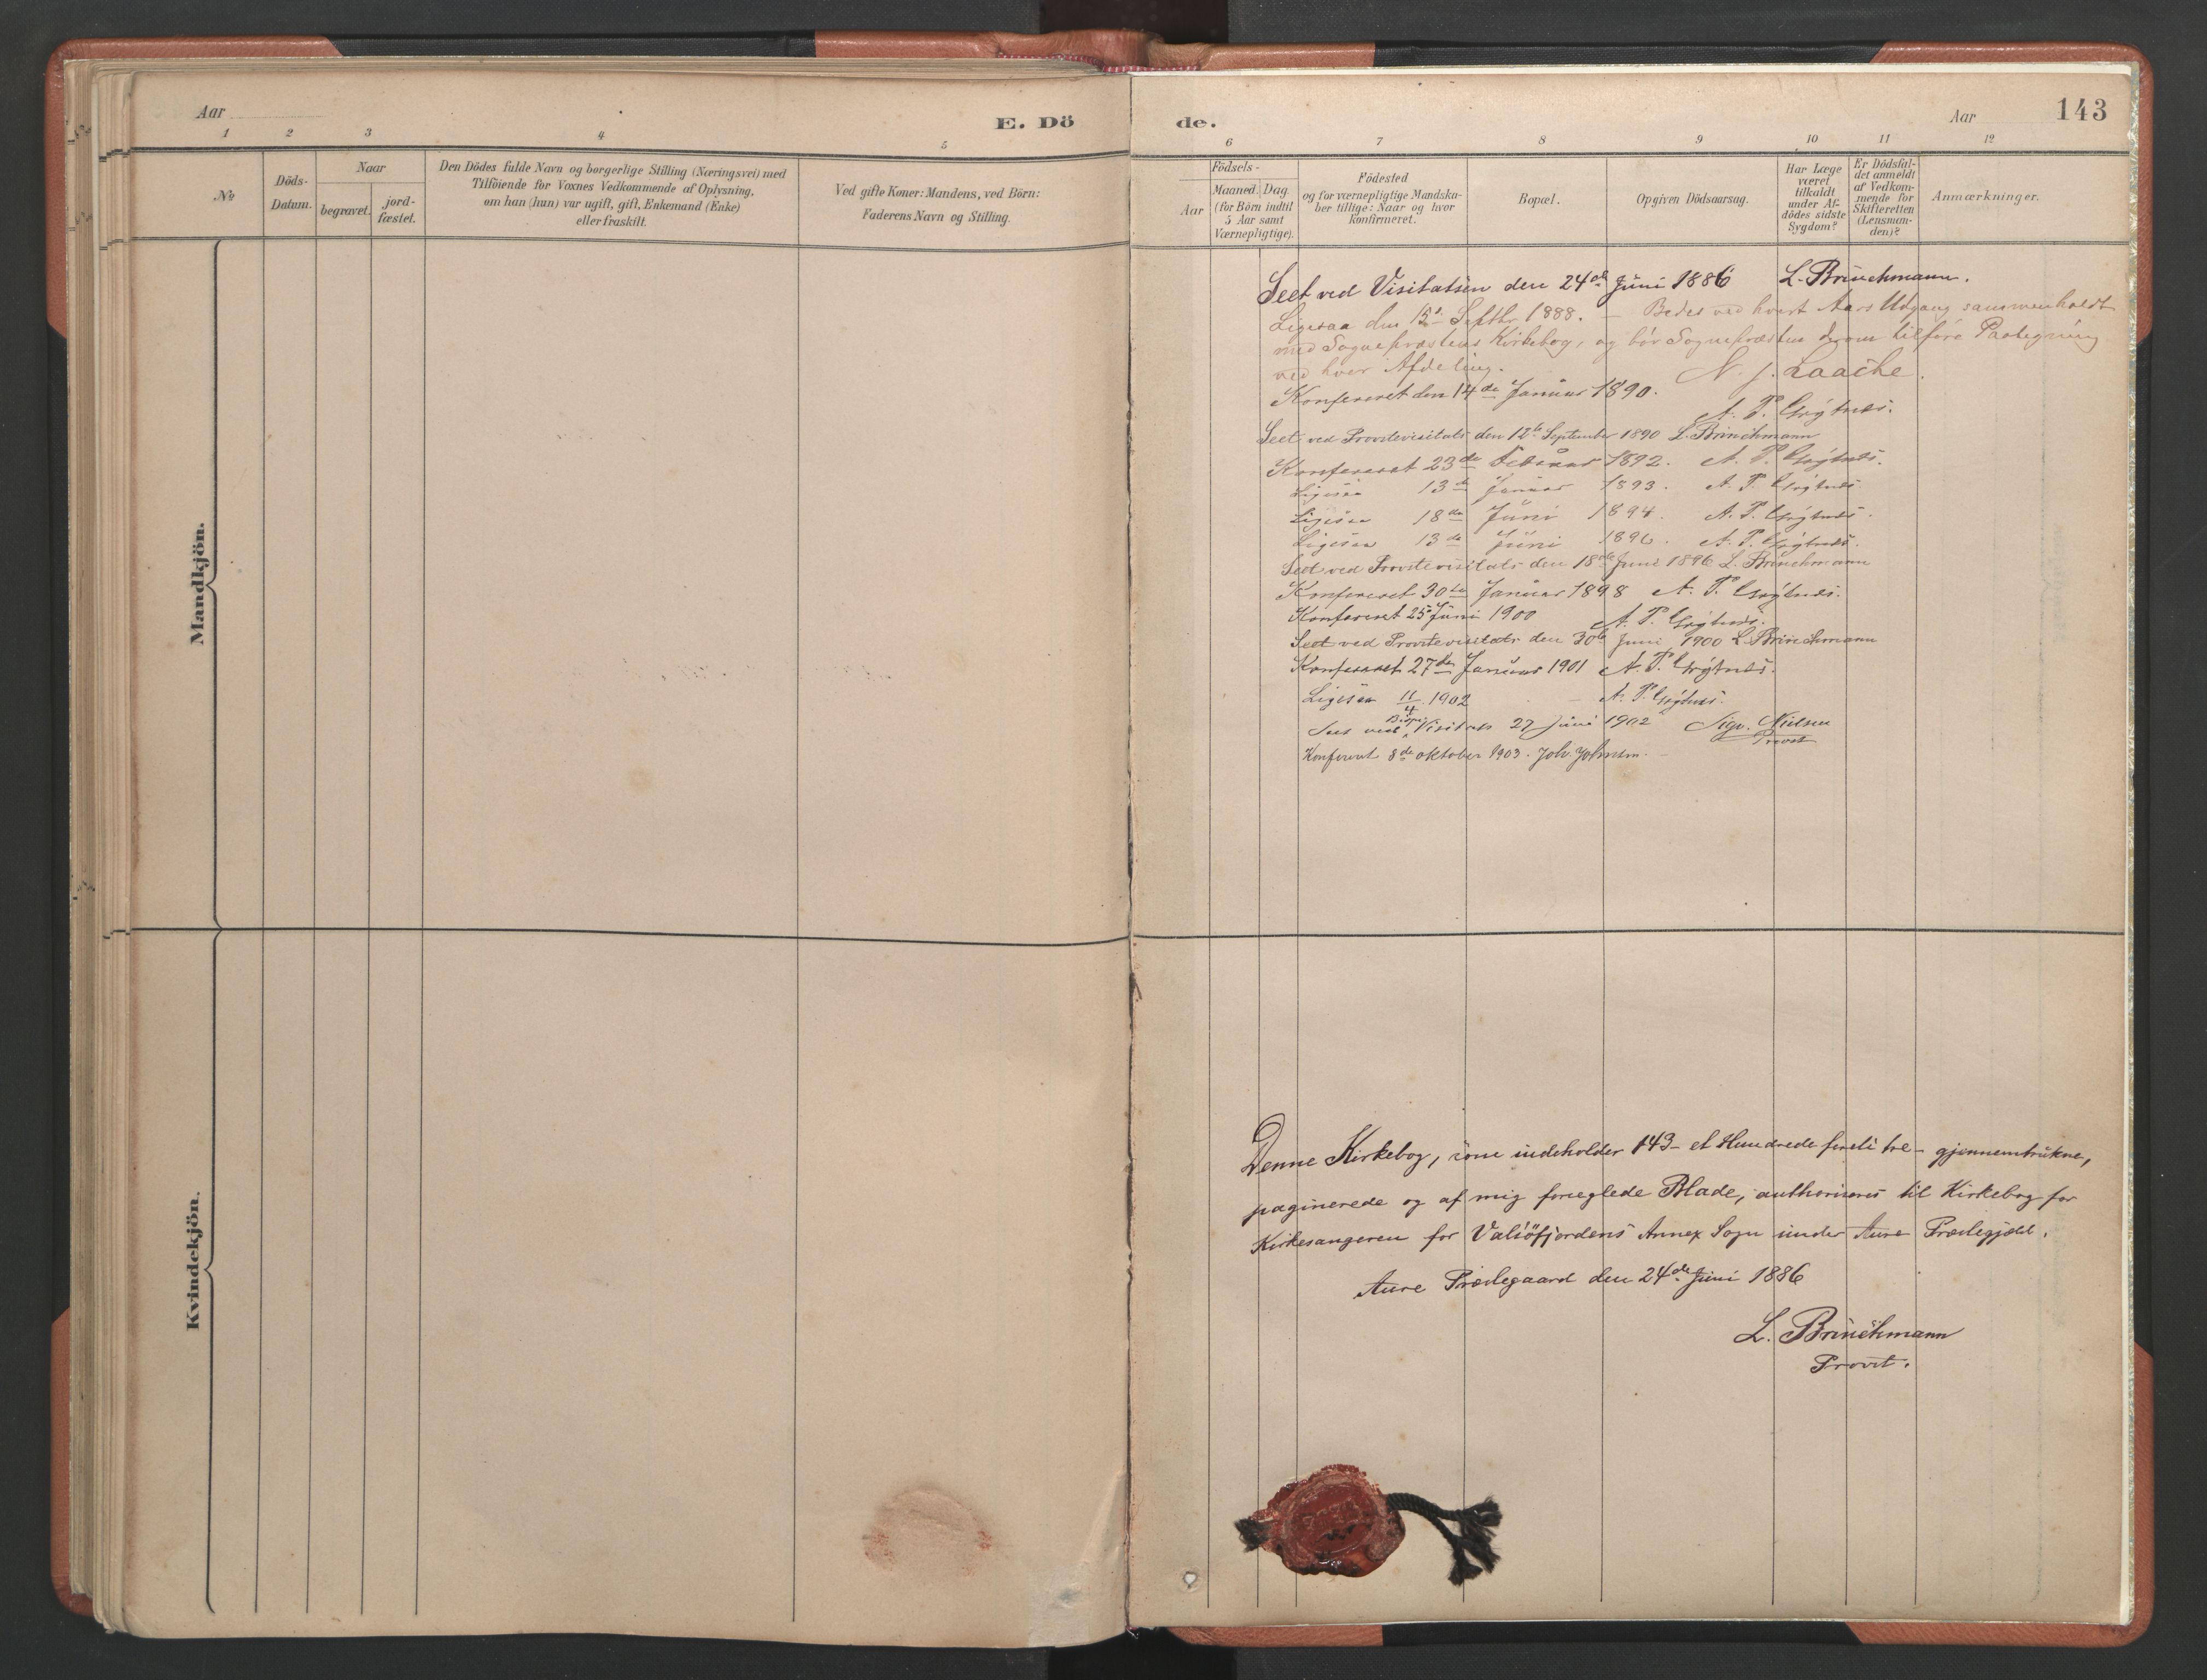 Aar
E. Dö
1
2
3
4
5
No
Döds-
Datum.
Naar
begravet.
jord-
fæstet.
Den Dödes fulde Navn og borgerlige Stilling (Næringsvei) med
Tilföiende for Voxnes Vedkommende af Oplysning,
om han (hun) var ugift, gift, Enkemand (Enke)
eller fraskilt.
Ved gifte Koner: Mandens, ved Börn:
Faderens Navn og Stilling.
Mandkjön.
Kvindekjön.
de.
Aar
143
6
7
8
9
10
11
12
Födsels-
Aar
Maaned. Dag.
(for Börn indtil
5 Aar samt
Værnepligtige).
Födested
og for værnepligtige Mandska-
ber tillige: Naar og hvor
konfirmeret.
Bopæl.
Opgiven Dödsaarsag.
Har Læge
været
tilkaldt
under Af-
dödes sidste
Sygdom?
Er Dödsfal-
det anmeldt
af Vedkom-
mende for
Skifteretten
(Lensman-
den)?
Anmærkninger.
Seet ved Visitatsen den 24de Juni 1886 L. Brinchmann.
Ligesaa den 15de Septbr 1888. – Bedes ved hvert Aars Udgang sammenholdt
med Sognepræstens Kirkebog, og bör Sognepræsten derom tilföre Paategning
ved hver Afdeling. N. J. Laache.
Konfereret den 14de Januar 1890.
A. P. Grÿtnes.
Seet ved Provstevisitats den 12te September 1890 L. Brinchmann
Konfereret 23de Februar 1892. A. P. Grÿtnes.
Ligesaa 13de Januar 1893. A. P. Grÿtnes.
Ligesaa 18de Juni 1894. A. P. Grÿtnes.
Ligesaa 13de Juni 1896. A. P. Grÿtnes.
Seet ved Provstevisitats den 18de Juni 1896 L. Brinchmann
Konfereret 30te Januar 1898 A. P. Grÿtnes.
Konfereret 25 Juni 1900 A. P. Grÿtnes.
Seet ved Provstevisitats den 30te Juni 1900 L. Brinchmann
Konfereret 27de Januar 1901 A. P. Grÿtnes.
Ligesaa 11/4 1902 A. P. Grÿtnes.
Seet ved Bispevisitats 27 Juni 1902 Sigv. Nielsen
Provst
Konfereret 8de oktober 1903. Joh. Johnsen.
Denne Kirkebog, som indeholder 143 – et Hundrede firti tre – gjennemtrukne,
paginerede og af mig forseglede Blade, authoriseres til Kirkebog for
Kirkesangeren for Valsöfjordens Annex Sogn under Aure Præstegjæld.
Aure Præstegaard den 24de Juni 1886
L. Brinchmann
Provst.